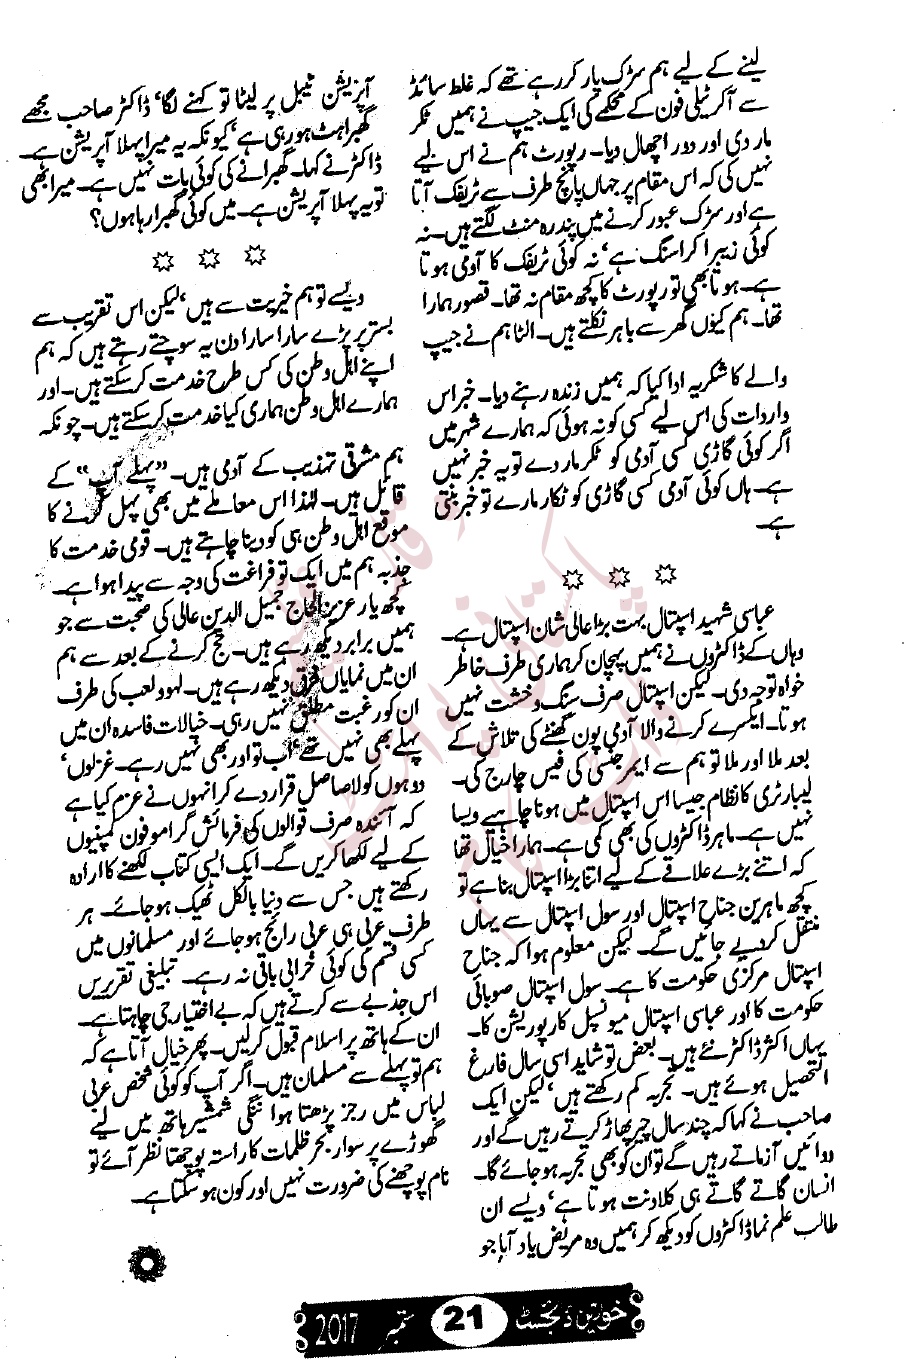 لینے کے لیے ہم سڑک پار کر رہے تھے کہ غلط سائڈ
سے آکر ٹیلی فون کے محکمے کی ایک جیپ نے ہمیں ٹکر
مار دی اور دور اچھال دیا۔ رپورٹ ہم نے اس لیے
نہیں کی کہ اس مقام پر جہاں پانچ طرف سے ٹریفک آتا
ہے اور سڑک عبور کرنے میں پندرہ منٹ لگتے ہیں۔ نہ
کوئی زیبرا کراسنگ ہے، نہ کوئی ٹریفک کا آدمی ہوتا
ہے۔ ہوتا بھی تو رپورٹ کا کچھ مقام نہ تھا۔ قصور ہمارا
تھا۔ ہم کیوں گھر سے باہر نکلتے ہیں۔ الٹا ہم نے جیپ
والے کا شکریہ ادا کیا کہ ہمیں زندہ رہنے دیا۔ خبر اس
واردات کی اس لیے کسی کو نہ ہوئی کہ ہمارے شہر میں
اگر کوئی گاڑی کسی آدمی کو ٹکر مار دے تو یہ خبر نہیں
ہے۔ ہاں کوئی آدمی کسی گاڑی کو ٹکار مارے تو خبر بنتی
ہے۔
عباسی شہید اسپتال بہت بڑا عالی شان اسپتال ہے۔
وہاں کے ڈاکٹروں نے ہمیں پہچان کر ہماری طرف خاطر
خواہ توجہ دی۔ لیکن اسپتال صرف سنگ و خشت نہیں
ہوتا۔ ایکسرے کرنے والا آدمی پون گھنٹے کی تلاش کے
بعد ملا اور ملا تو ہم سے ایمرجنسی کی فیس چارج کی۔
لیبارٹری کا نظام جیسا اس اسپتال میں ہونا چاہیے ویسا
نہیں ہے۔ ماہر ڈاکٹروں کی بھی کمی ہے۔ ہمارا خیال تھا
کہ اتنے بڑے علاقے کے لیے اتنا بڑا اسپتال بنا ہے تو
کچھ ماہرین جناح اسپتال اور سول اسپتال سے یہاں
منتقل کر دیے جائیں گے۔ لیکن معلوم ہوا کہ جناح
اسپتال مرکزی حکومت کا ہے۔ سول اسپتال صوبائی
حکومت کا اور عباسی اسپتال میونسپل کارپوریشن کا۔
یہاں اکثر ڈاکٹر نئے ہیں۔ بعض تو شاید اسی سال فارغ
التحصیل ہوئے ہیں۔ تجربہ کم رکھتے ہیں، لیکن ایک
صاحب نے کہا کہ چند سال چیر پھاڑ کرتے رہیں گے اور
دوائیں آزماتے رہیں گے تو ان کو بھی تجربہ ہو جائے گا۔
انسان گاتے گاتے ہی کلاونت ہوتا ہے، ویسے ان
طالب علم نما ڈاکٹروں کو دیکھ کر ہمیں وہ مریض یاد آیا جو
آپریشن ٹیبل پر لیٹا تو کہنے لگا، ڈاکٹر صاحب مجھے
گھبراہٹ ہو رہی ہے، کیونکہ یہ میرا پہلا آپریشن ہے۔
ڈاکٹر نے کہا۔ گھبرانے کی کوئی بات نہیں ہے۔ میرا بھی
تو یہ پہلا آپریشن ہے۔ میں کوئی گھبرا رہا ہوں؟
ویسے تو ہم خیریت سے ہیں، لیکن اس تقریب سے
بستر پر پڑے سارا سارا دن یہ سوچتے رہتے ہیں کہ ہم
اپنے اہل وطن کی کس طرح خدمت کر سکتے ہیں۔ اور
ہمارے اہل وطن ہماری کیا خدمت کر سکتے ہیں۔ چونکہ
ہم مشرقی تہذیب کے آدمی ہیں۔ ”پہلے آپ“ کے
قائل ہیں۔ لہٰذا اس معاملے میں بھی پہل کرنے کا
موقع اہل وطن ہی کو دینا چاہتے ہیں۔ قومی خدمت کا
جذبہ ہم میں ایک تو فراغت کی وجہ سے پیدا ہوا ہے۔
کچھ یار عزیز الحاج جمیل الدین عالی کی صحبت سے جو
ہمیں برابر دیکھ رہے ہیں۔ حج کرنے کے بعد سے ہم
ان میں نمایاں فرق دیکھ رہے ہیں۔ لہو و لعب کی طرف
ان کو رغبت مطلق نہیں رہی۔ خیالات فاسدہ ان میں
پہلے بھی نہیں تھے اب تو اور بھی نہیں رہے۔ غزلوں،
دوہوں کو لاحاصل قرار دے کر انہوں نے عزم کیا ہے
کہ آئندہ صرف قوالوں کی فرمائش گراموفون کمپنیوں
کے لیے لکھا کریں گے۔ ایک ایسی کتاب لکھنے کا ارادہ
رکھتے ہیں جس سے دنیا بالکل ٹھیک ہو جائے۔ ہر
طرف عربی ہی عربی رائج ہو جائے اور مسلمانوں میں
کسی قسم کی کوئی خرابی باقی نہ رہے۔ تبلیغی تقریریں
اس جذبے سے کرتے ہیں کہ بے اختیار جی چاہتا ہے۔
ان کے ہاتھ پر اسلام قبول کر لیں۔ پھر خیال آتا ہے کہ
ہم تو پہلے سے مسلمان ہیں۔ اگر آپ کو کوئی شخص عربی
لباس میں رجز پڑھتا ہوا ننگی شمشیر ہاتھ میں لیے
گھوڑے پر سوار بحر ظلمات کا راستہ پوچھتا نظر آئے تو
نام پوچھنے کی ضرورت نہیں اور کون ہو سکتا ہے۔
خواتین ڈائجسٹ 21 ستمبر 2017